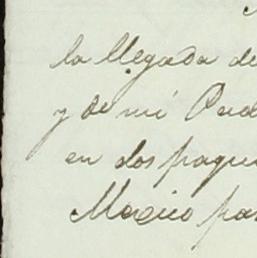 la llegada de
y de mi Pad
en dos paque
Mexico par